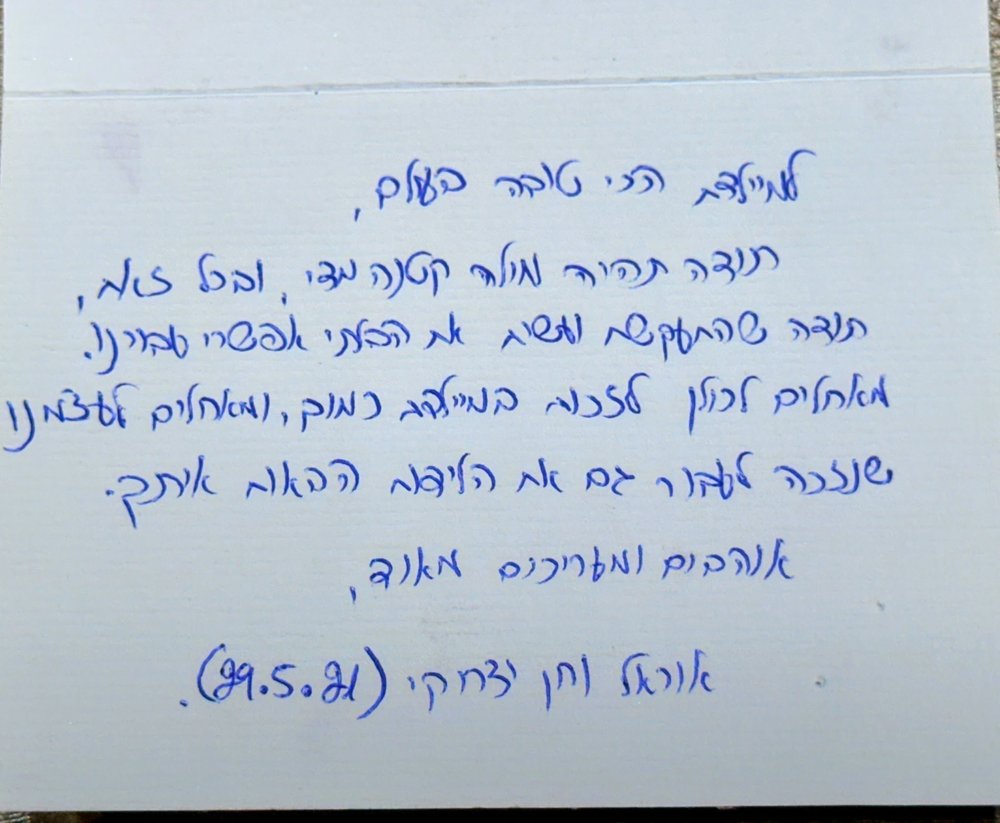 למיילדת הכי טובה בעולם,
תודה תהיה מילה קטנה מדי, ובכל זאת,
תודה שהתעקשת ועשית את הבלתי אפשרי עבורנו.
מאחלים לכולן לזכות במיילדת כמוך, ומאחלים לעצמנו
שנזכה לעבור גם את הלידות הבאות איתך.
אוהבים ומעריכים מאוד,
אוראל וחן יצחקי (29.5.21).